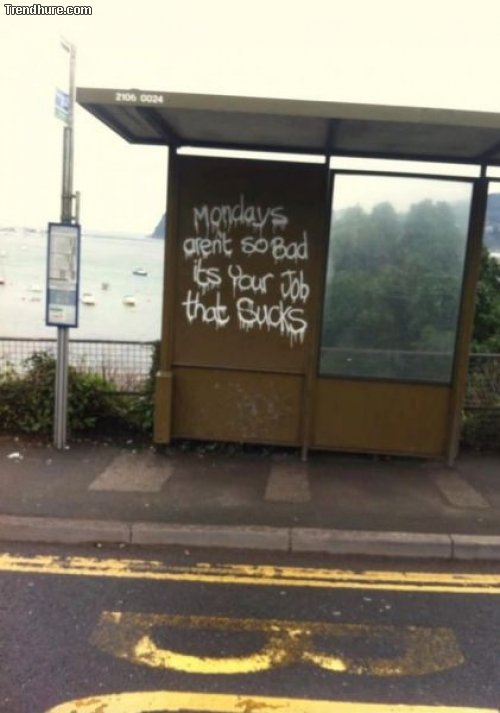 Trendhure.com
2106 0024
Mondays
arent so Bad
its Your Job
that Sucks
B